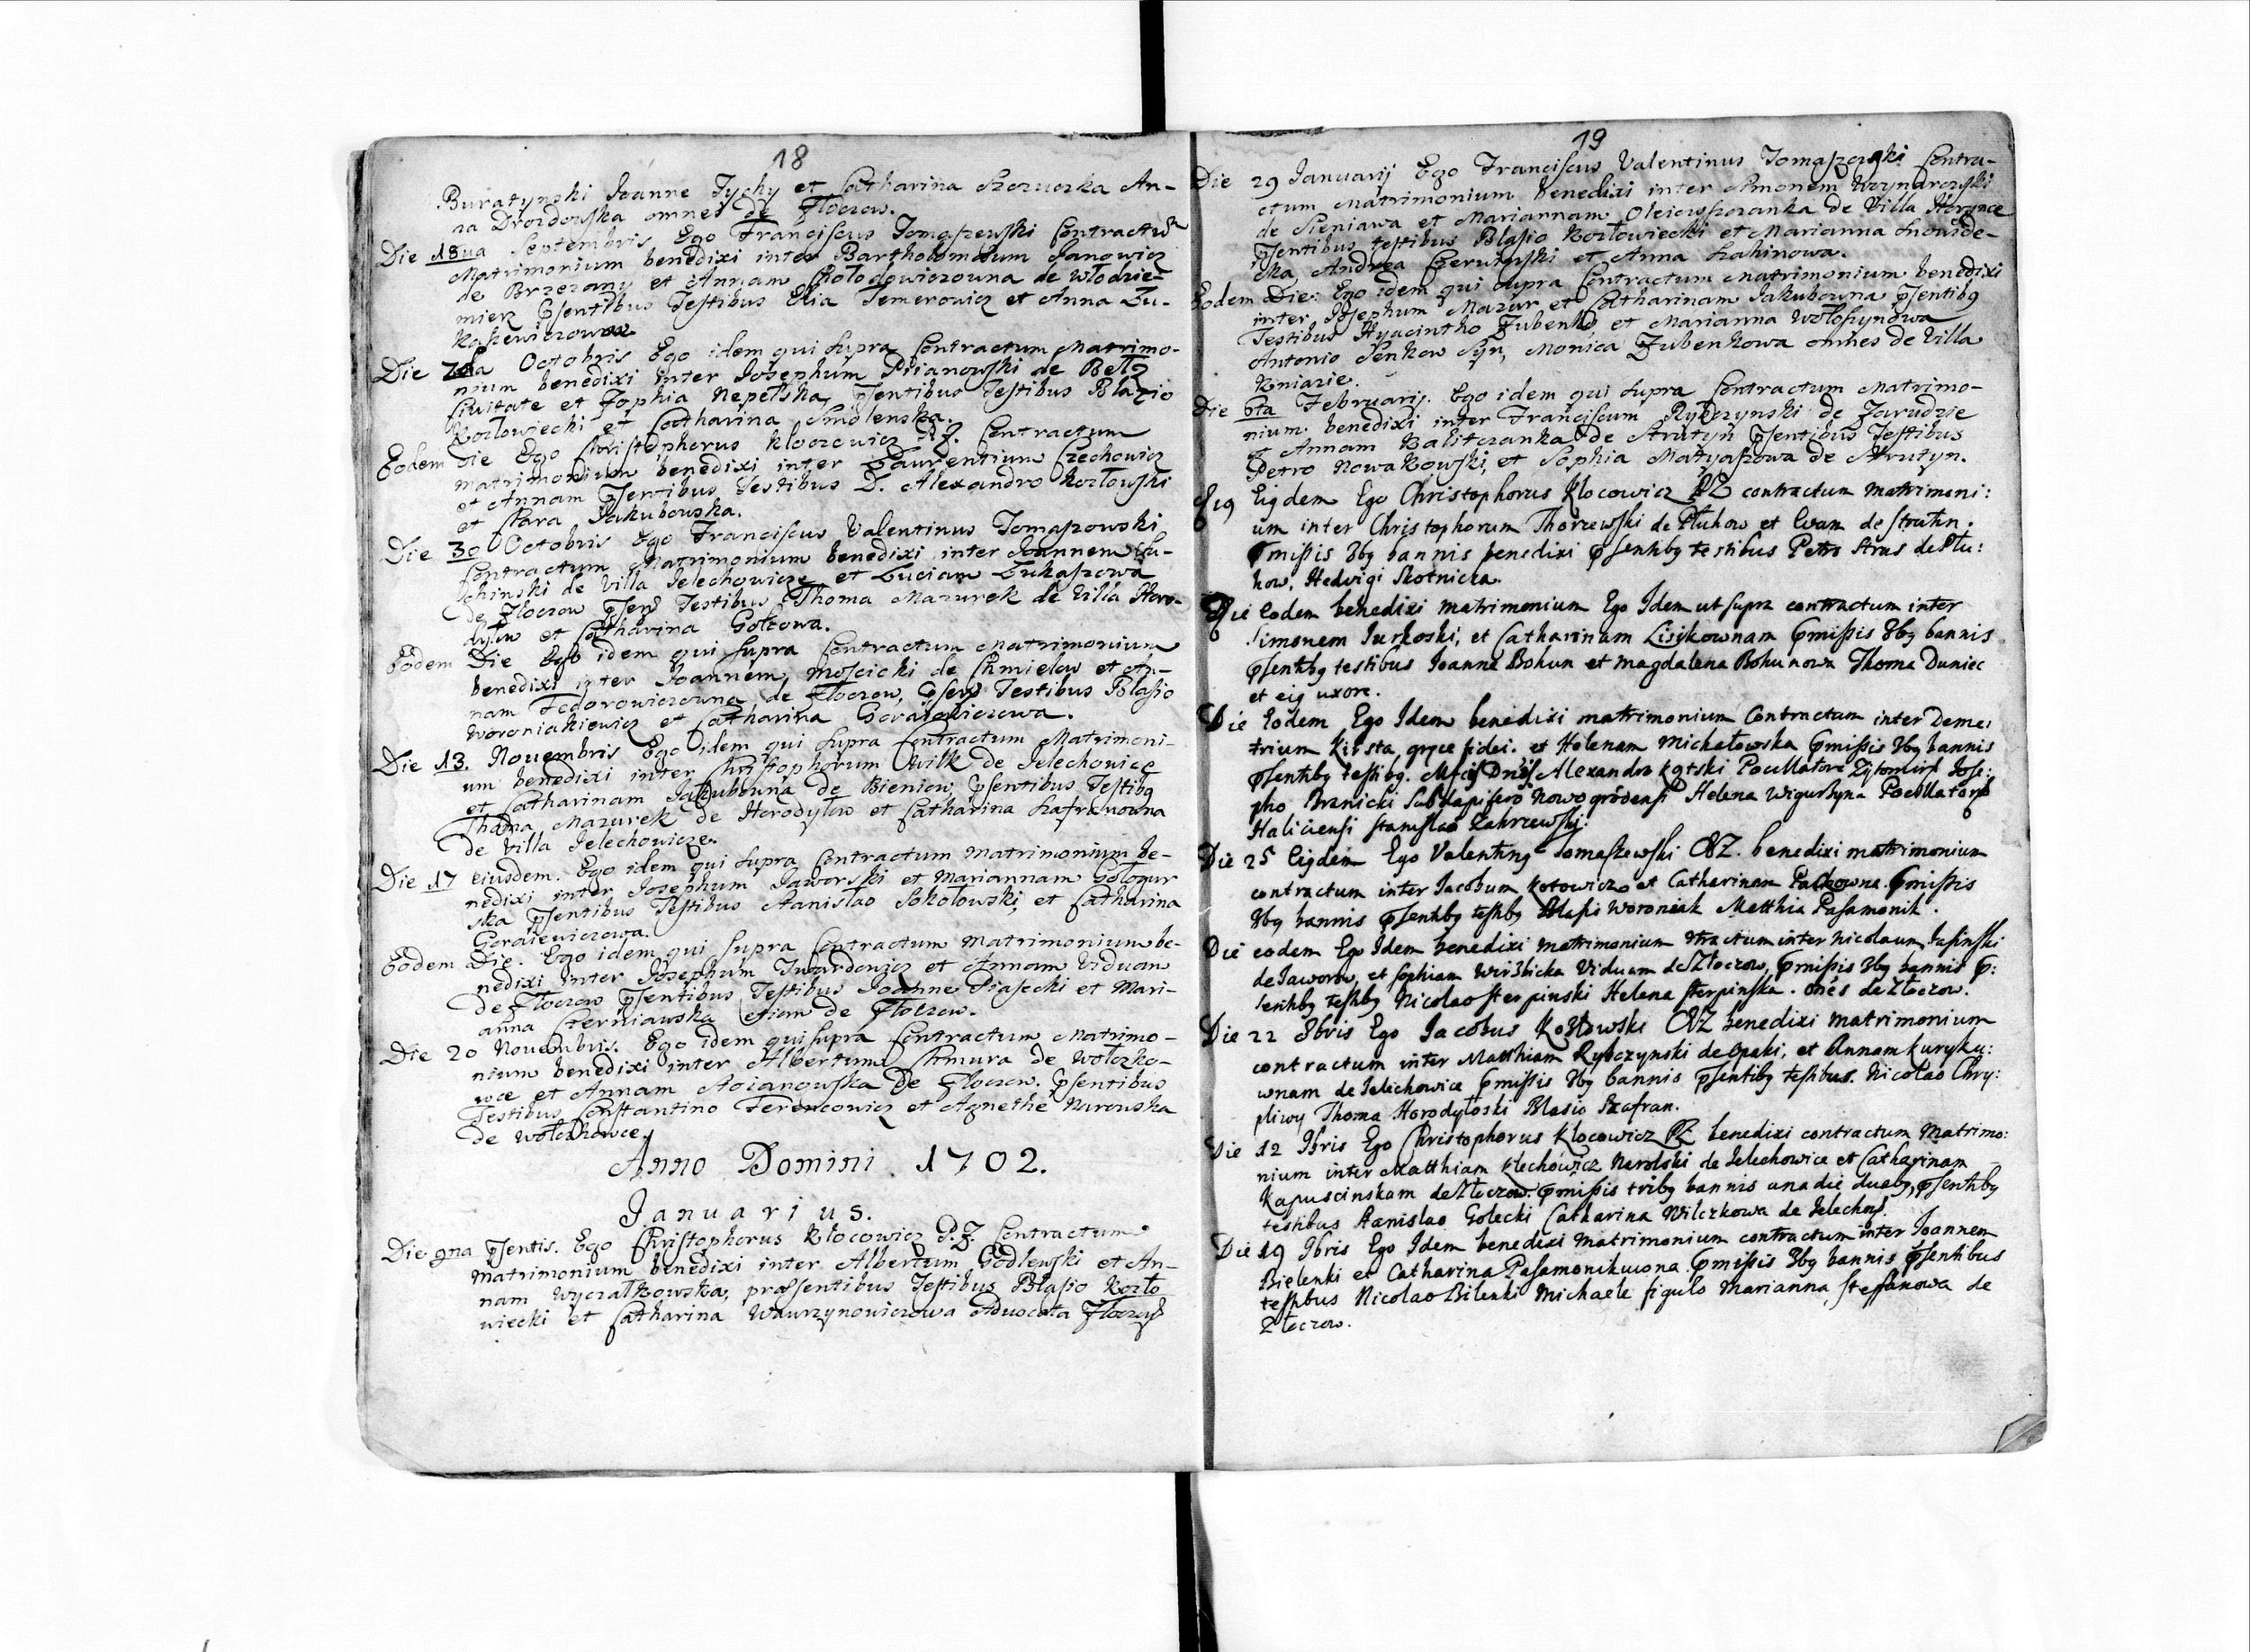 18
Buratynski Joanne Tychy et Catharina Szewczka An-
na Drozdowska omnes de Złoczow.
Die 18ua Septembris Ego Franciscus Tomaszewski Contractũ
Matrimonium benedixi inter Bartholomæum Janowicz
de Brzezany et Annam Chołodowiczowna de Włodzie-
mierz Psentibus Testibus Elia Temerowicz et Anna Łu-
kasiewiczowna
Die Octobris Ego idem qui supra Contractum Matrimo-
nium benedixi inter Josephum Piianowski de Bełz
Ciuitate et Zophia Nepelska, Psentibus Testibus Blazio
Kozłowiecki et Catharina Smolenska.
Eodem Die Ego Christophorus Kloczowicz P.Z. Contractum
Matrimonium benedixi inter Laurentium Czechowicz
et Annam Psentibus Testibus D. Alexandro Kozłowski
et Clara Jakubowska.
Die 30 Octobris Ego Franciscus Valentinus Tomaszowski
Contractum Matrimonium benedixi inter Joannem Su-
chinski de Villa Jelechowicze et Luciam Łukaszowa
de Złoczow Psen Testibus Thoma Mazurek de Villa Horo-
dyłow et Catharina Golcowa.
Eodem Die Ego idem qui supra Contractum Matrimonium
benedixi inter Joannem Moscicki de Chmielow et An-
nam Fedorowiczowna de Złoczow, Psen Testibus Blasio
Woroniakiewicz et Catharina Goraiewiczowa.
Die 13. Nouembris Ego idem qui supra Contractum Matrimoni-
um benedixi inter Christophorum Wilk de Jelechowice
et Catharinam Jakubowna de Bieniow, Psentibus Testibq
Thoma Mazurek de Horodyłow et Catharina Szafranowna
de Villa Jelechowicze.
Die 17 eiusdem. Ego idem qui supra Contractum Matrimonium be-
nedixi inter Josephum Jaworski et Mariannam Gołogur
ska Psentibus Testibus Stanislao Sokołowski, et Catharina
Goraiewiczowa.
Eodem Die. Ego idem qui supra Contractum Matrimonium be-
nedixi inter Josephum Twardowicz et Annam Viduam
de Złoczow Psentibus Testibus Joanne Piasecki et Mari-
anna Czerniawska etiam de Złoczow.
Die 20 Nouembris. Ego idem qui supra Contractum Matrimo-
nium benedixi inter Albertum Chmura de Wołczko-
wce et Annam de Złoczow. Psentibus
Testibus Constantino Ferencowicz et Agnethe Nurowska
de Wołczkowce
Anno Domini 1702.
Januarius.
Die gna Psentis. Ego Christophorus Kłocowicz P.Z. Contractum
Matrimonium benedixi inter Albertum Godlewski et An-
nam Wyczałkowska, præsentibus Testibus Blasio Kozło
wiecki et Catharina Wawrzynowiczowa Aduocata
19
Die 29 Januarij Ego Franciscus Valentinus Tomaszewski Contra-
ctum Matrimonium benedixi inter Simonem
de Sieniawa et Mariannam Oleiowszczanka de Villa
Psentibus testibus Blasio Kozłowiecki et Marianna
ska Andrea et Anna
Eodem Die: Ego idem qui supra Contractum Matrimonium benedixi
inter Josephum Mazur et Catharinam Jakubowna Psentibq
Testibus Hyacintho Zubenko et Marianna Wołoszynowa
Antonio Senkow Syn, Monica Zubenkowa omnes de Villa
Kniazie.
Die 6ta Februarij. Ego idem qui supra Contractum Matrimo-
nium benedixi inter Franciscum Rybczynski de Zarudzie
et Annam Baliczanka de Strutyn Psentibus Testibus
Petro Nowakowski, et Sophia Matyaszowa de Strutyn.
19 Eigdem Ego Christophorus Klocowicz PZ contractum matrimoni:
um inter Christophorum Thorzewski de Płuhow et Evam de Strutin.
Pmissis 3bq bannis benedixi Psentibq testibus Petro Strus de Płu:
how, Hedvigi Skotnicka.
Die Eodem benedixi matrimonium Ego Idem ut supra contractum inter
Simonem Jurkoski, et Catharinam Lisikownam Pmissis 3bq bannis
Psentibq testibus Joanne Bohun et Magdalena Bohunowa Thoma Duniec
et eig uxore.
Die Eodem Ego Idem benedixi matrimonium Contractum inter Deme:
trium Kirsta, gręce fidei. et Helenam Michałowska Pmissis 3bq bannis
Psentibq testibq. Alexandro Kątski Pocillatore Jose:
pho Branicki Subdapifero Nowogrodensi Helena Wigurzyna
Haliciensi Stanislao Zakrzewski.
Die 25 Eigdem Ego Valenting Tomaszewski CVZ. benedixi matrimonium
contractum inter Jacobum Kotowicz et Catharinam Packowna. Pmissis
3bq bannis Psentibq testibq Blasio Woroniak Matthia Pasamonik.
Die eodem Ego Idem benedixi matrimonium tractum inter Nicolaum Jasinski
de Jaworow, et Sophiam Wirzbicka Viduam de Złoczow, Pmissis 3bq bannis P:
sentibq testibq Nicolao Sterpinski Helena Sterpinska. onés de Złoczow.
Die 22 8bris Ego Jacobus Kozłowski CVZ benedixi matrimonium
contractum inter Matthiam Rybczynski de Opaki, et Annam Kuryku:
wnam de Jelechowice Pmissis 3bq bannis Psentibq testibus. Nicolao Chry:
pliwy Thoma Horodyłoski Blasio Szafran.
Die 12 9bris Ego Christophorus Klocowicz PZ benedixi contractum Matrimo:
nium inter Matthiam Klechowicz Narolski de Jelechowice et Catharinam
Kapuscinskam de Złoczow. Pmissis tribq bannis una die duabq, Psentibq
testibus Stanislao Golecki Catharina Wilczkowa de Jelechow.
Die 19 9bris Ego Idem benedixi matrimonium contractum inter Joannem
Bielenki et Catharina Pasamonikuwona. Pmissis 3bq bannis Psentibus
testibus Nicolao Bilenki Michaele figulo Marianna Steffanowa de
Złoczow.